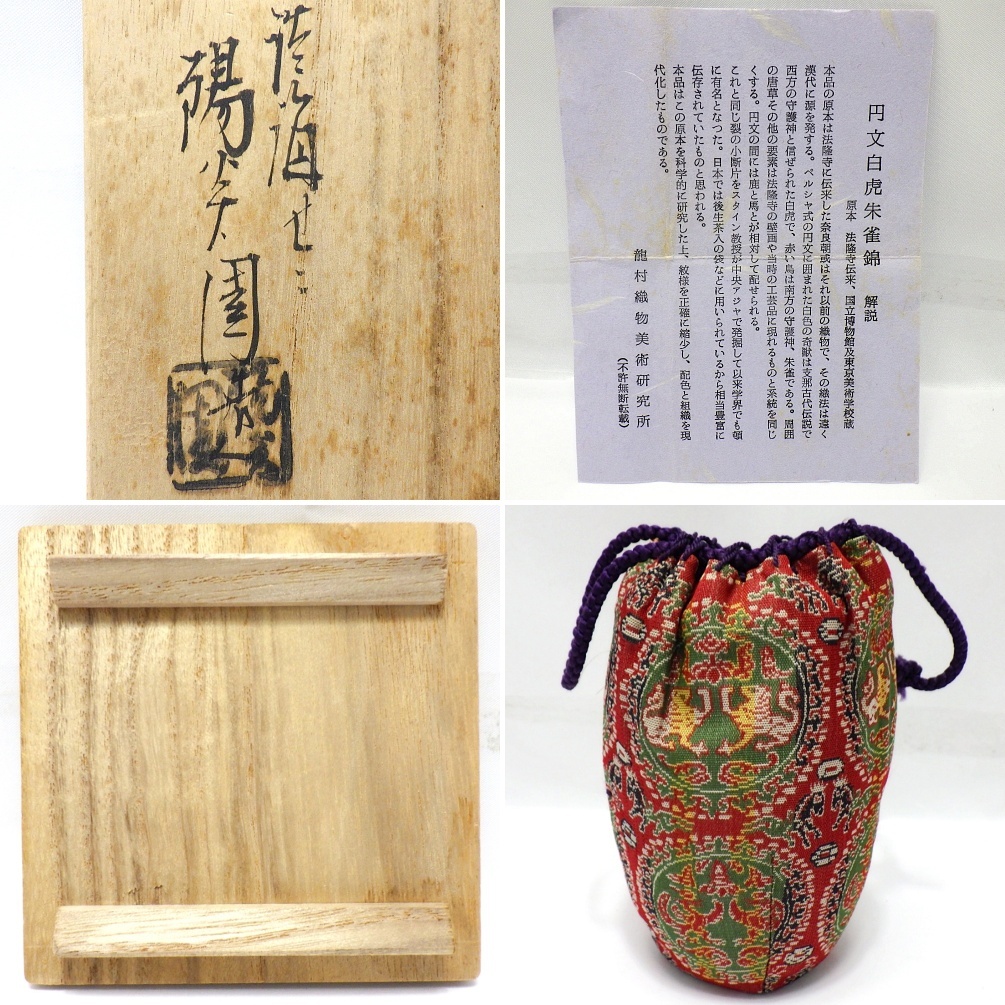 陽炎園
円文白虎朱雀錦 解説
原本 法隆寺伝来、国立博物館及東京美術学校蔵
本品の原本は法隆寺に伝来した奈良朝或はそれ以前の織物で、その織法は遠く
漢代に源を発する。ペルシャ式の円文に囲まれた白色の奇獣は支那古代伝説で
西方の守護神と信ぜられた白虎で、赤い鳥は南方の守護神、朱雀である。周囲
の唐草その他の要素は法隆寺の壁画や当時の工芸品に現れるものと系統を同じ
くする。円文の間には鹿と馬とが相対して配せられる。
これと同じ裂の小断片をスタイン教授が中央アジヤで発掘して以来学界でも頓
に有名となつた。日本では後生茶入の袋などに用いられているから相当豊富に
伝存されていたものと思われる。
本品はこの原本を科学的に研究した上、紋様を正確に縮少し、配色と組織を現
代化したものである。
龍村織物美術研究所
(不許無断転載)